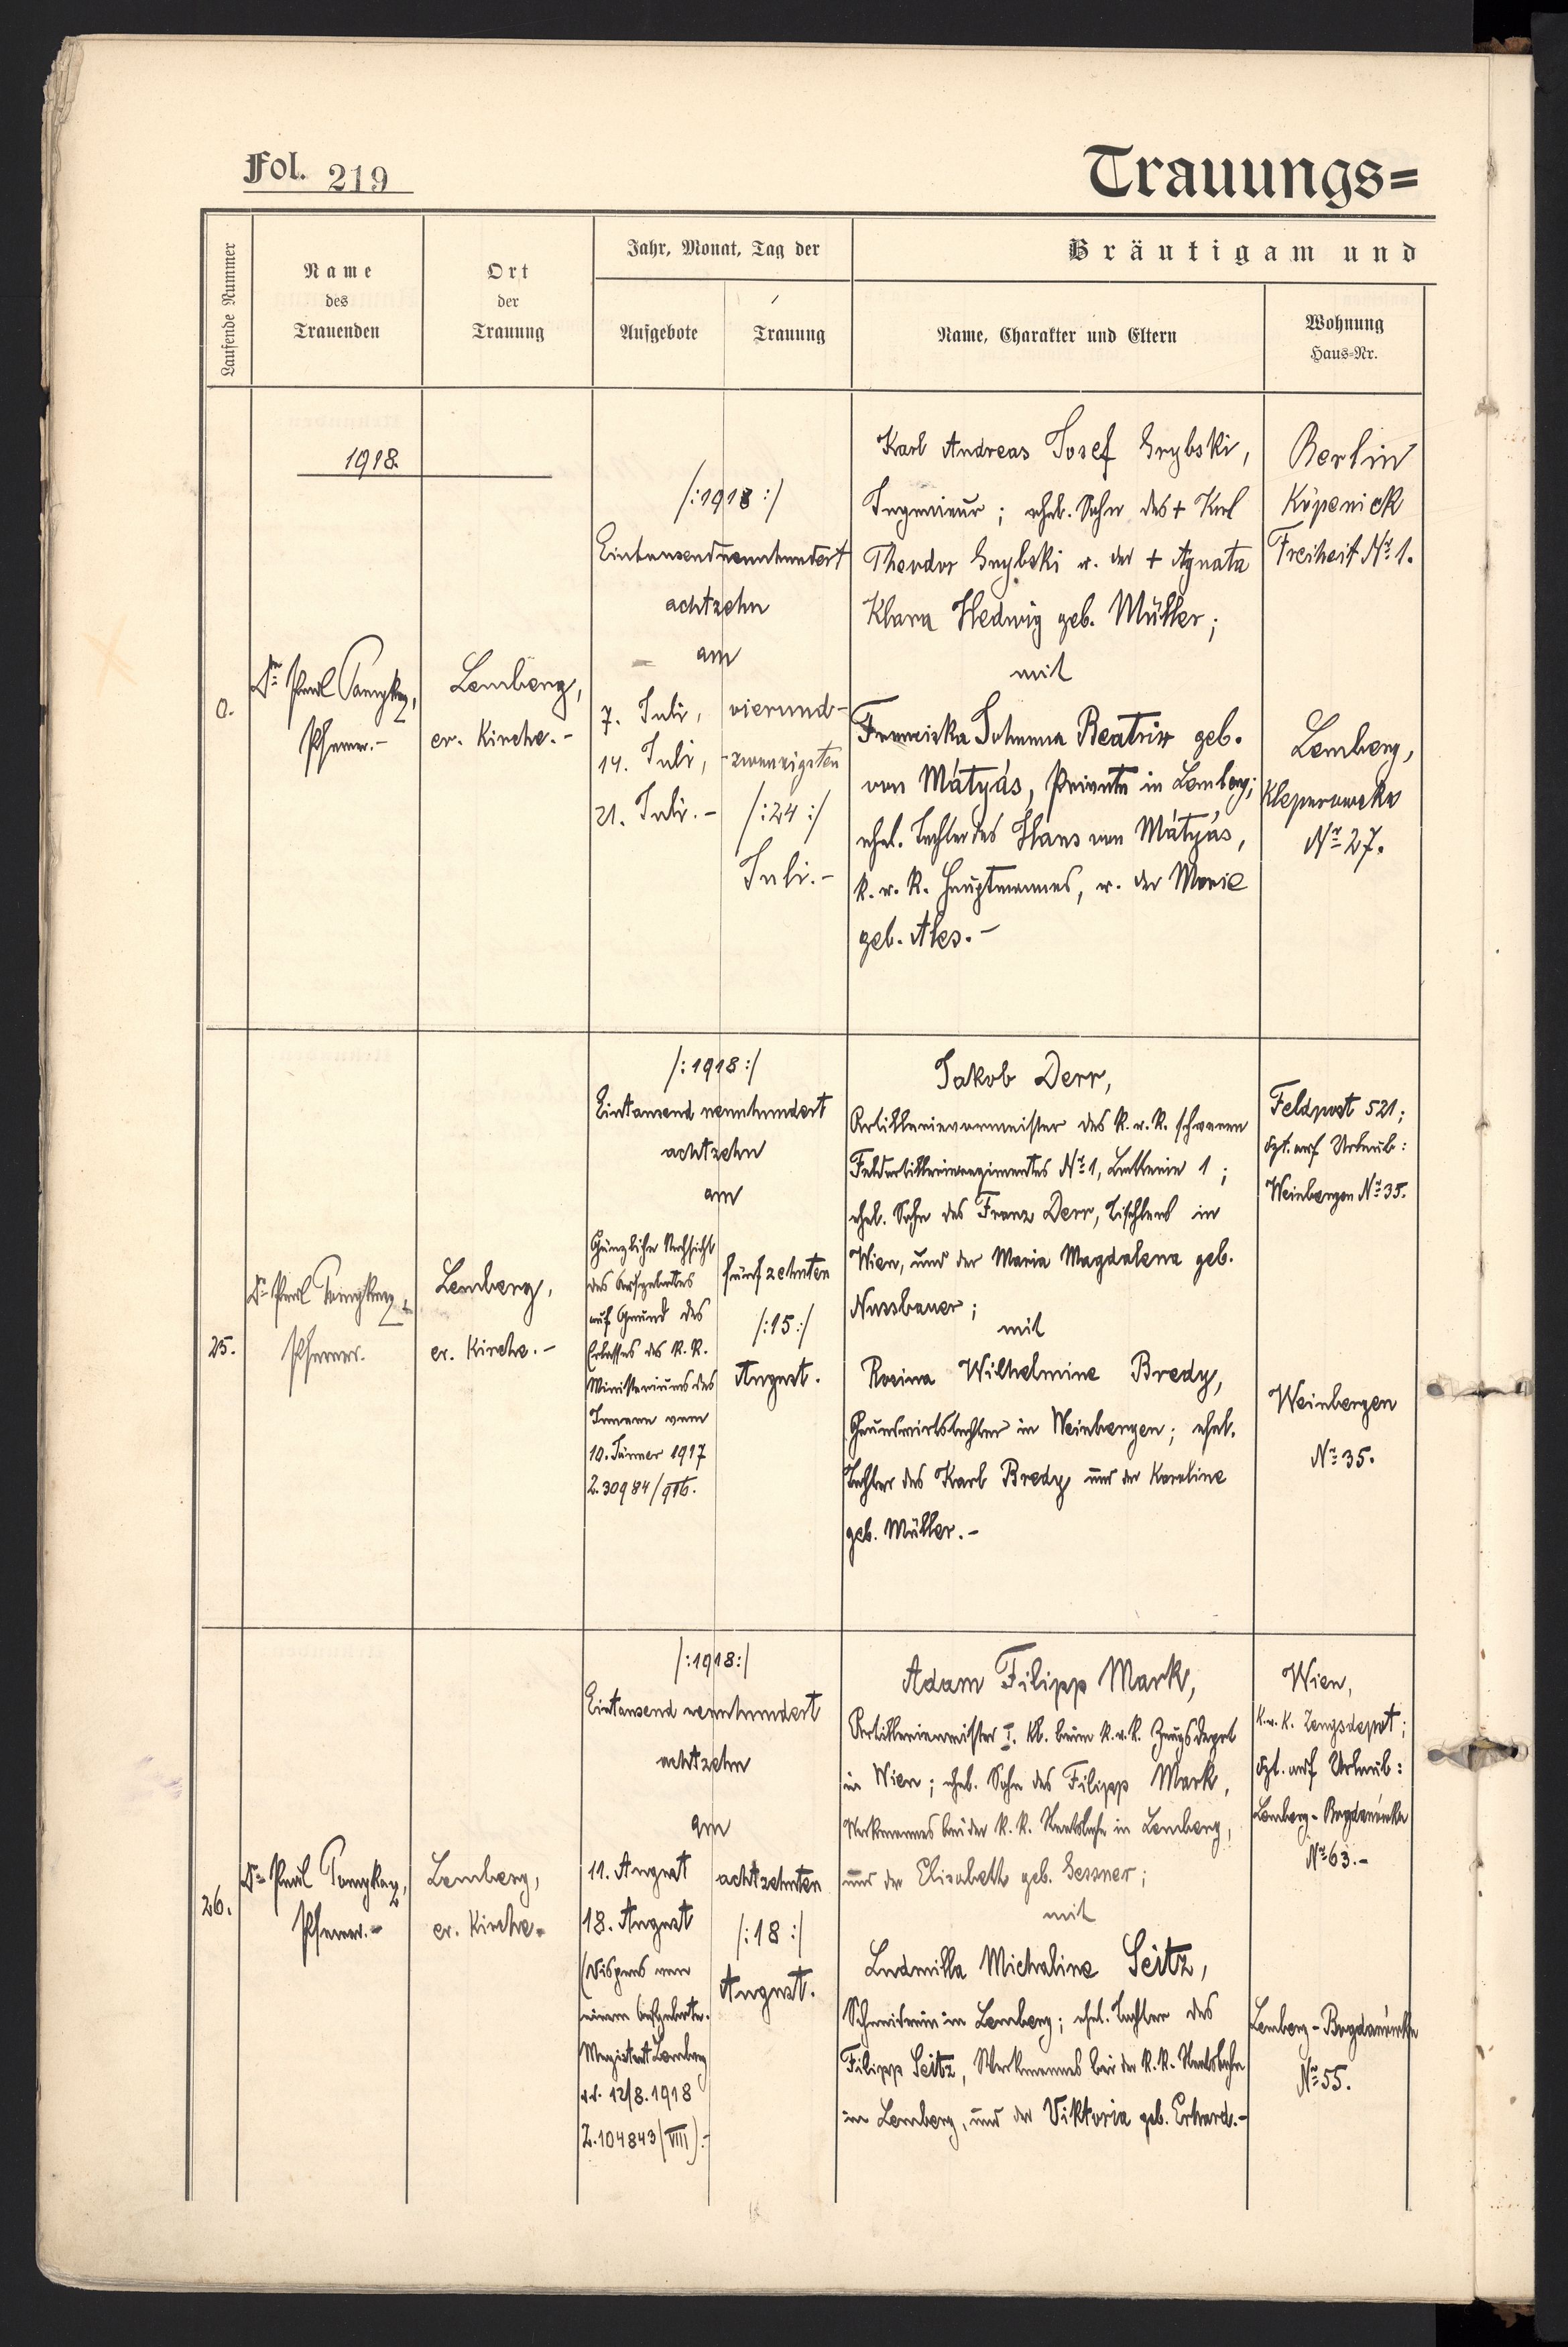 Fol. 219
Trauungs=
Laufende Nummer
Name
des
Trauenden
Ort
der
Trauung
Jahr, Monat, Tag der
Aufgebote
Trauung
Bräutigam und
Name, Charakter und Eltern
Wohnung
Haus=Nr.
1918.
0.
Pfarrer.-
Lemberg,
ev. Kirche.-
/:1918:/
Eintausendneunhundert
achtzehn
am
7. Juli,
14. Juli,
21. Juli.-
vierund-
-zwanzigsten
/:24:/
Juli.-
Karl Andreas Josef Grybski,
Ingenieur; ehel. Sohn des + Karl
Theodor Grybski u. der + Agnata
Klara Hedwig geb. Müller;
mit
Franziska Johanna Beatrix geb.
von Mátyás, Private in Lemberg;
ehel. Tochter des Hans von Mátyás,
k. u. k. Hauptmannes, u. der Marie
geb. Ales.-
Berlin
Köpenick
Freiheit Nr. 1.
Lemberg,
Nr. 27.
25.
Pfarrer.
Lemberg,
ev. Kirche.-
/:1918:/
Eintausend neunhundert
achtzehn
am
Gänzliche Nachsicht
des Aufgebotes
auf Grund des
Erlasses des k. k.
Ministeriums des
Innern vom
10. Jänner 1917
Z. 30984/916.
fünfzehnten
/:15:/
August.
Jakob Derr,
Artillerievormeister des k. u. k. schweren
Feldartillerieregimentes Nr. 1, Batterie 1;
ehel. Sohn des Franz Derr, Tischlers in
Wien, und der Maria Magdalena geb.
Nussbauer;
mit
Rosina Wilhelmine Bredy,
Grundwirtstochter in Weinbergen; ehel.
Tochter des Karl Bredy und der Karoline
geb. Müller.-
Feldpost 521;
dzt. auf Urlaub:
Weinbergen Nr. 35.
Weinbergen
Nr. 35.
26.
Pfarrer.-
Lemberg,
ev. Kirche.
/:1918:/
Eintausend neunhundert
achtzehn
am
11. August
18. August
(Dispens vom
Aufgebote.
Magistrat Lemberg
v. 12/8. 1918
Z. 104843/VIII).-
achtzehnten
/:18:/
August.
Adam Filipp Mark,
Artilleriemeister I. Kl. beim k. u. k. Zeugsdepot
in Wien; ehel. Sohn des Filipp Mark,
Werkmannes bei der k. k. Staatsbahn in Lemberg,
und der Elisabeth geb. Gessner;
mit
Ludmilla Michaline Seitz,
Schneiderin in Lemberg; ehel. Tochter des
Filipp Seitz, Werkmannes bei der k. k. Staatsbahn
in Lemberg, und der Viktoria geb. Erhard.-
Wien,
k. u. k. Zeugsdepot;
dzt. auf Urlaub:
Lemberg-Bogdanówka
Nr. 63.-
Lemberg-Bogdanówka
Nr. 55.